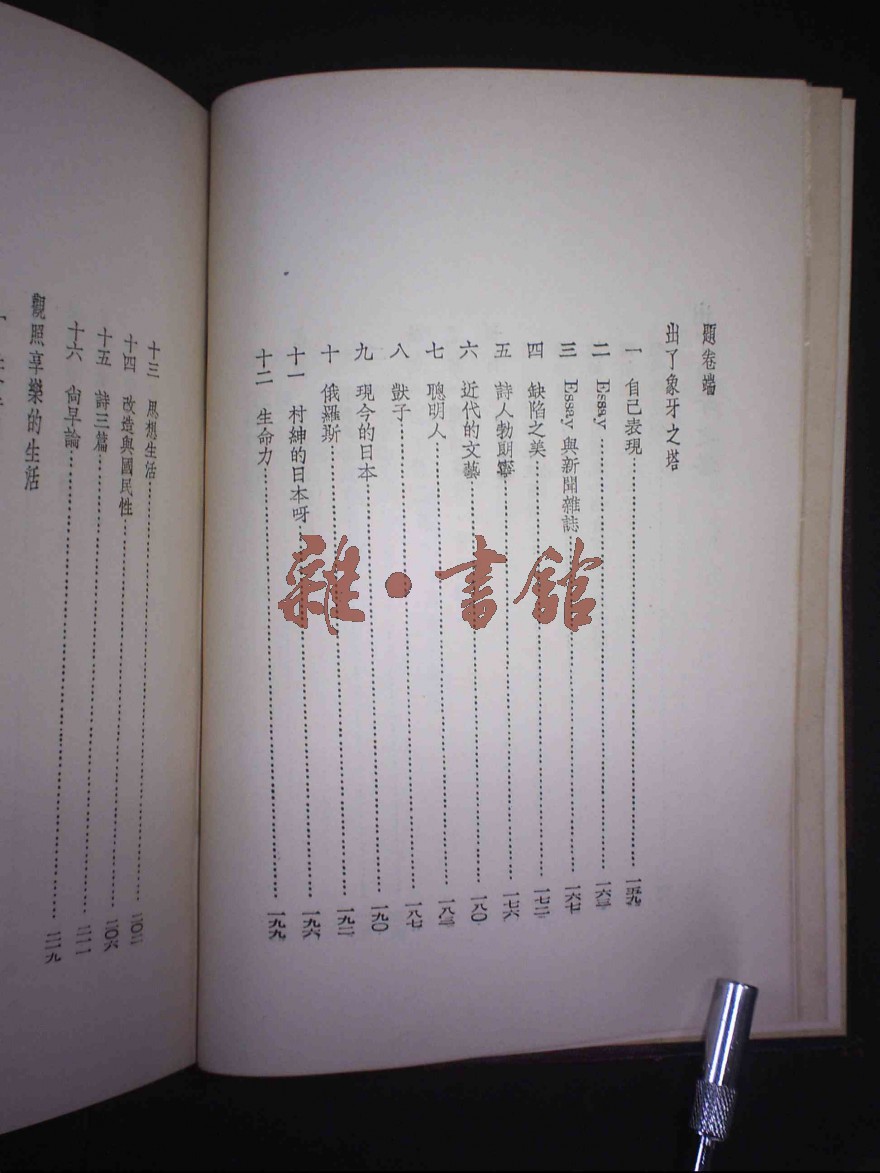 題卷端
出了象牙之塔
一 自己表現……一五九
二 Essay……一六三
三 Essay 與新聞雜誌……一六七
四 缺陷之美……一七二
五 詩人勃朗寧……一七六
六 近代的文藝……一八〇
七 聰明人……一八三
八 獃子……一八七
九 現今的日本……一九〇
十 俄羅斯……一九二
十一 村紳的日本呀……一九六
十二 生命力……一九九
十三 思想生活……二〇二
十四 改造與國民性……二〇六
十五 詩三篇……二一一
十六 尙早論……二一九
觀照享樂的生活
一
雜•書館